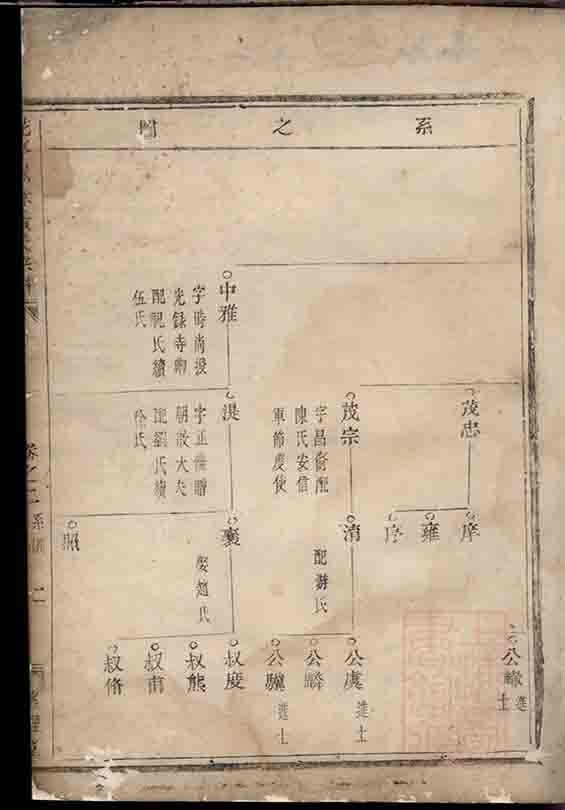 系之圖
公轍 進士
茂忠
庠
雍
序
茂宗
字昌衡配
陳氏安信
軍節度使
清
配游氏
公虞 進士
公麟
公驥 進士
中雅
字時尚授
光録寺卿
配祝氏續
伍氏
湜
贈
朝散大夫
配劉氏續
徐氏
襄
娶趙氏
照
叔度
叔熊
叔甫
叔脩
卷之二